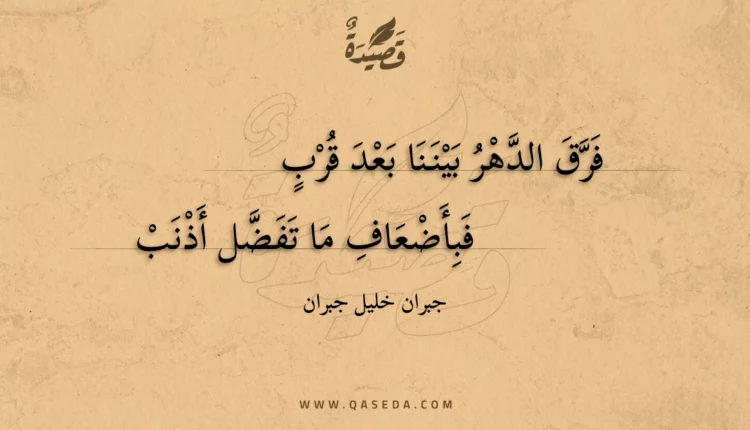 قَصِيْدَةٌ
فَرَّقَ الدَّهْرُ بَيْنَنَا بَعْدَ قُرْبٍ
فَبِأَضْعَافِ مَا تَفَضَّل أَذْنَبْ
جبران خليل جبران
WWW.QASEDA.COM